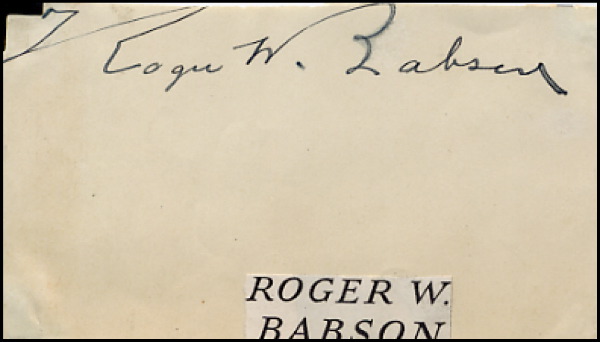 Roger W. Babson
ROGER W.
BABSON